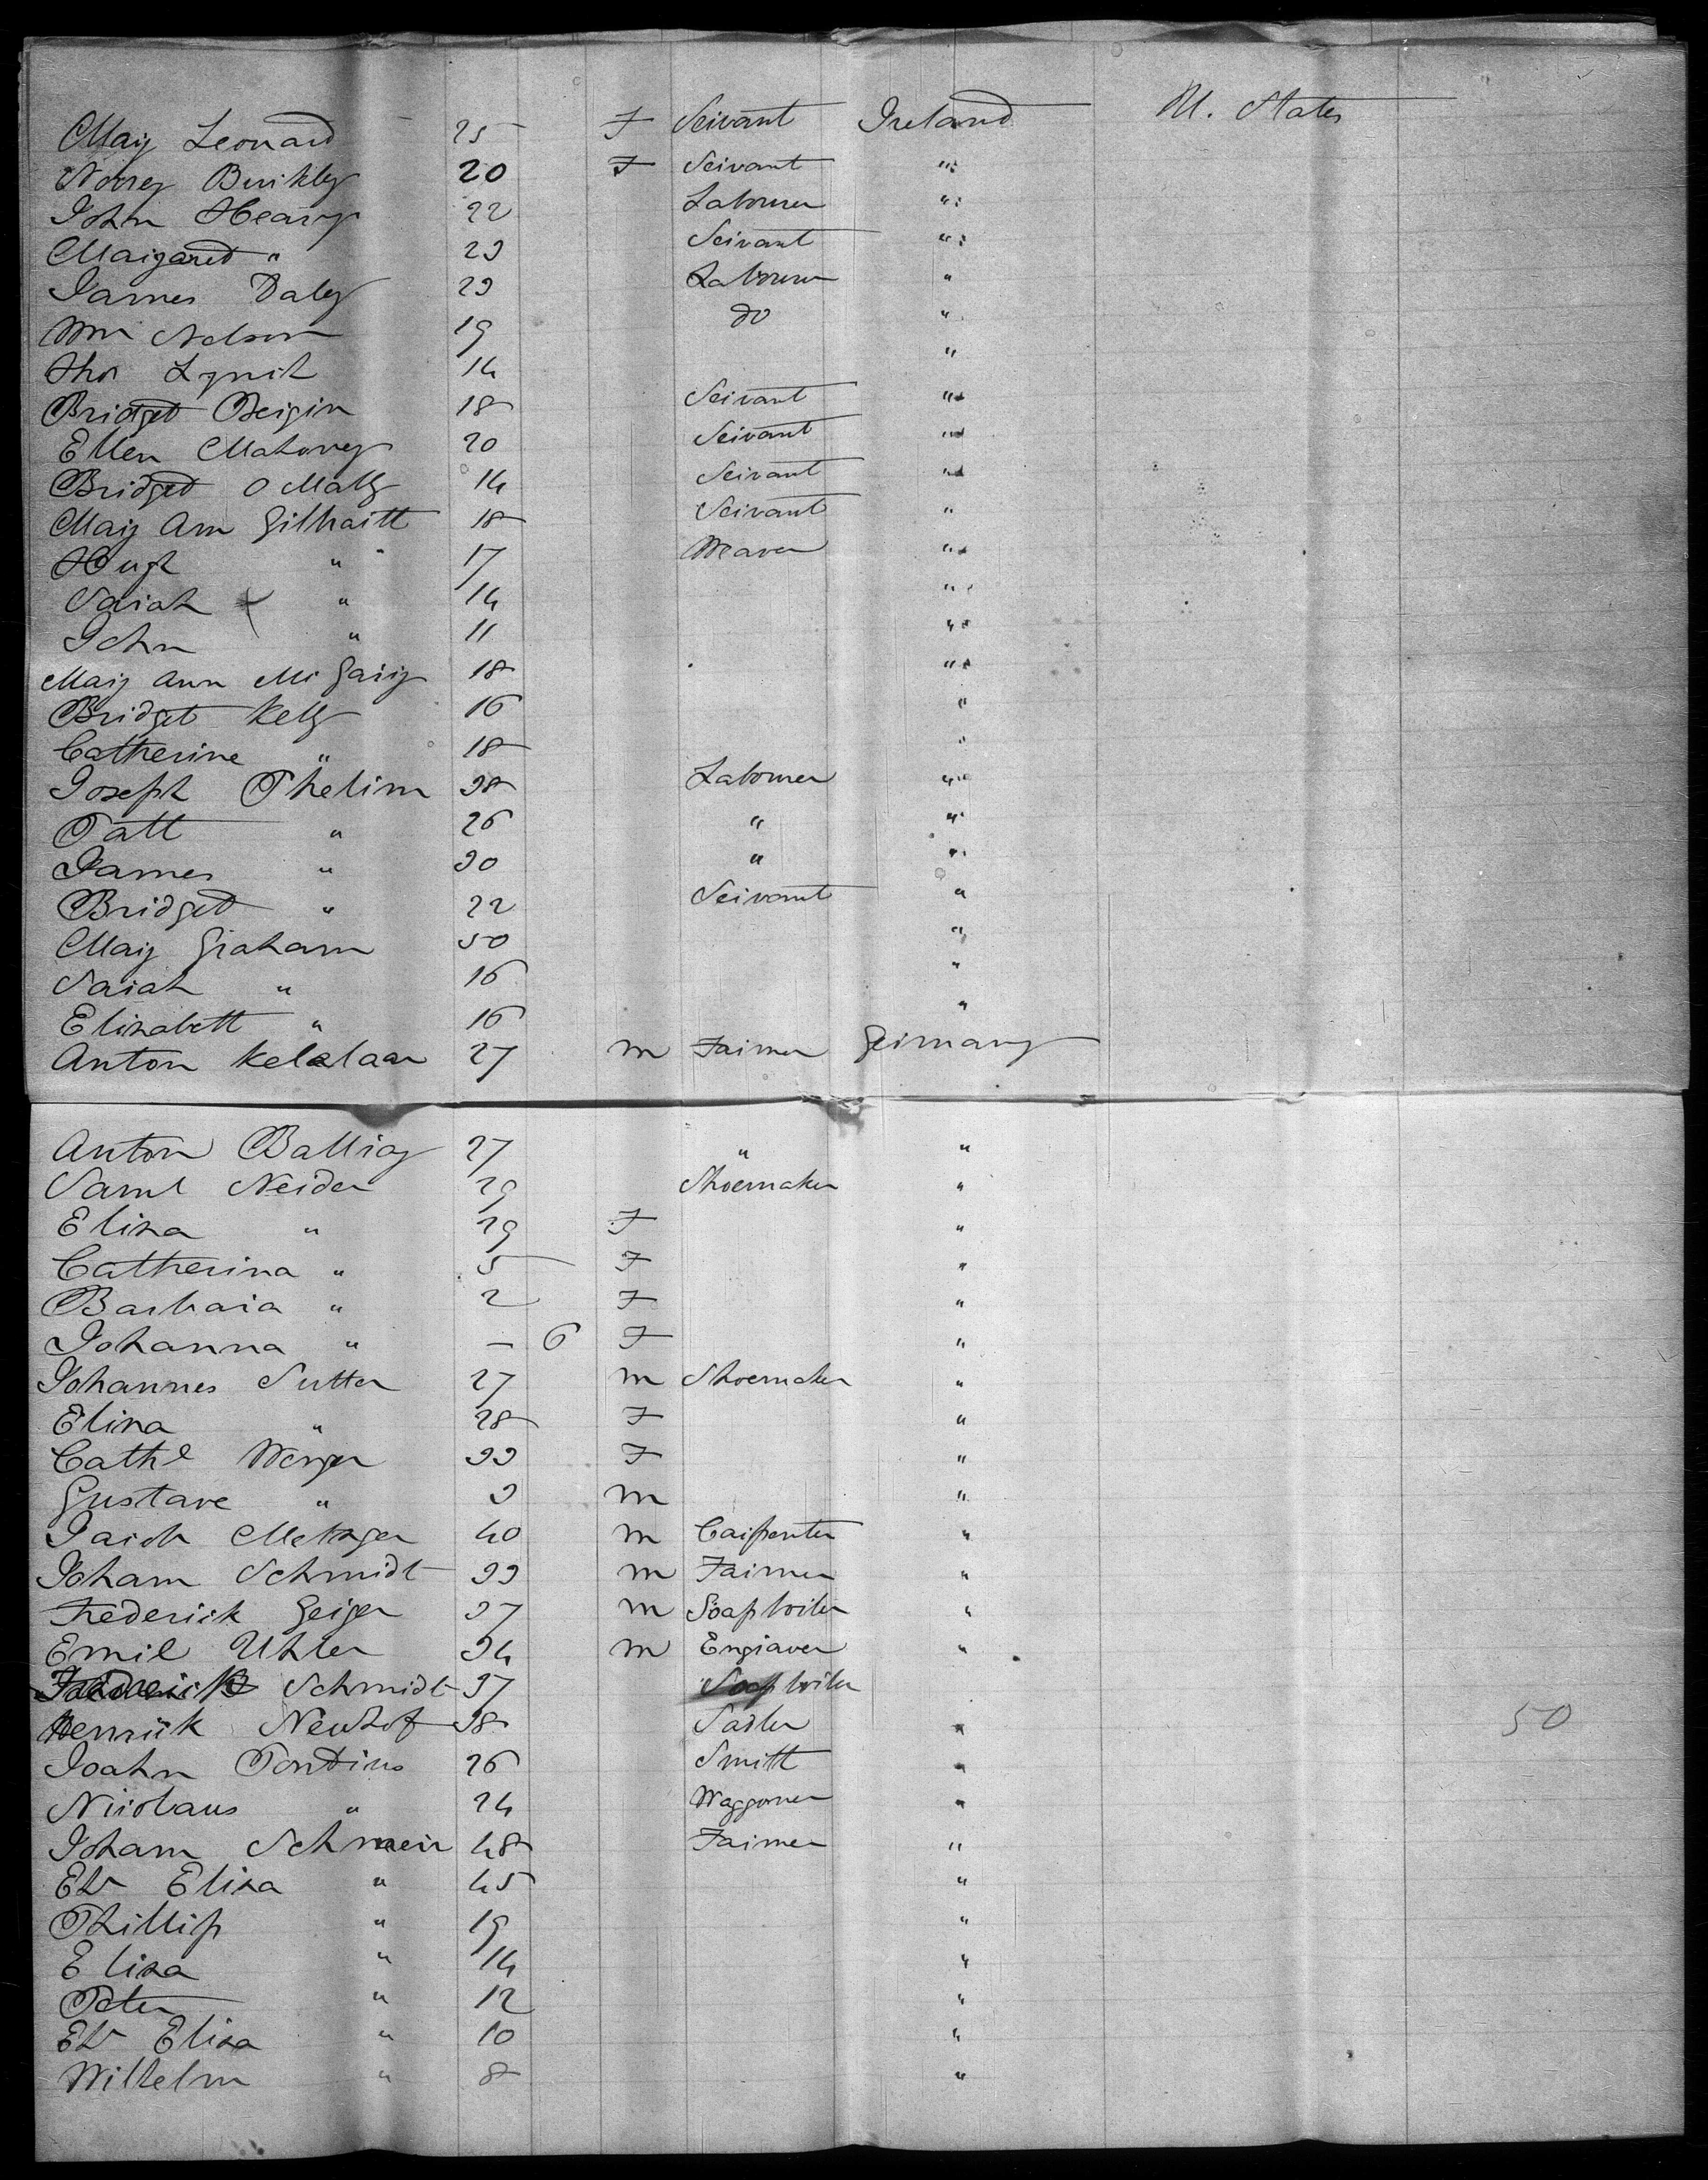 Mary Leonard 25 F Servant Ireland U. States
Norry Buckley 20 F Servant "
John Heavy 22 Labourer "
Margaret " 23 Servant "
James Daley 23 Labourer "
Wm Nelson 19 do "
Thos Lynch 14 "
Bridget Bergin 18 Servant "
Ellen Mahoney 20 Servant "
Bridget O Mally 14 Servant "
Mary Ann Gilhaitt 18 Servant "
Hugh " 17 Weaver "
Sarah " 14 "
John " 11 "
Mary Ann Mc Gary 18 "
Bridget Kelly 16 "
Catherine " 18 "
Joseph Phelim 38 Labourer "
Patt " 26 " "
James " 30 " "
Bridget " 22 Servant "
Mary Graham 50 "
Sarah " 16 "
Elizabett " 16 "
Anton 27 m Farmer Germany
Anton 27 " "
Saml Neider 29 Shoemaker "
Eliza " 29 F "
Catherina " 5 F "
Barbara " 2 F "
Johanna " - 6 F "
Johannes Sutter 27 m Shoemaker "
Eliza " 28 F "
Cathe 33 F "
Gustave " 3 m "
Jacob Metzger 40 m Carpenter "
Joham Schmidt 33 m Farmer "
Frederick Geiger 37 m Soapboiler "
Emil Uhler 34 m Engraver "
Schmidt 37 Soapboiler
Henrick Neuhof 38 Sadler " 50
Joahn Pontius 26 Smitt "
Nicolaus " 24 Waggoner "
Joham 48 Farmer "
Eliza " 45 "
Phillip " 19 "
Eliza " 14 "
Peter " 12 "
Eliza " 10 "
Wilhelm " 8 "